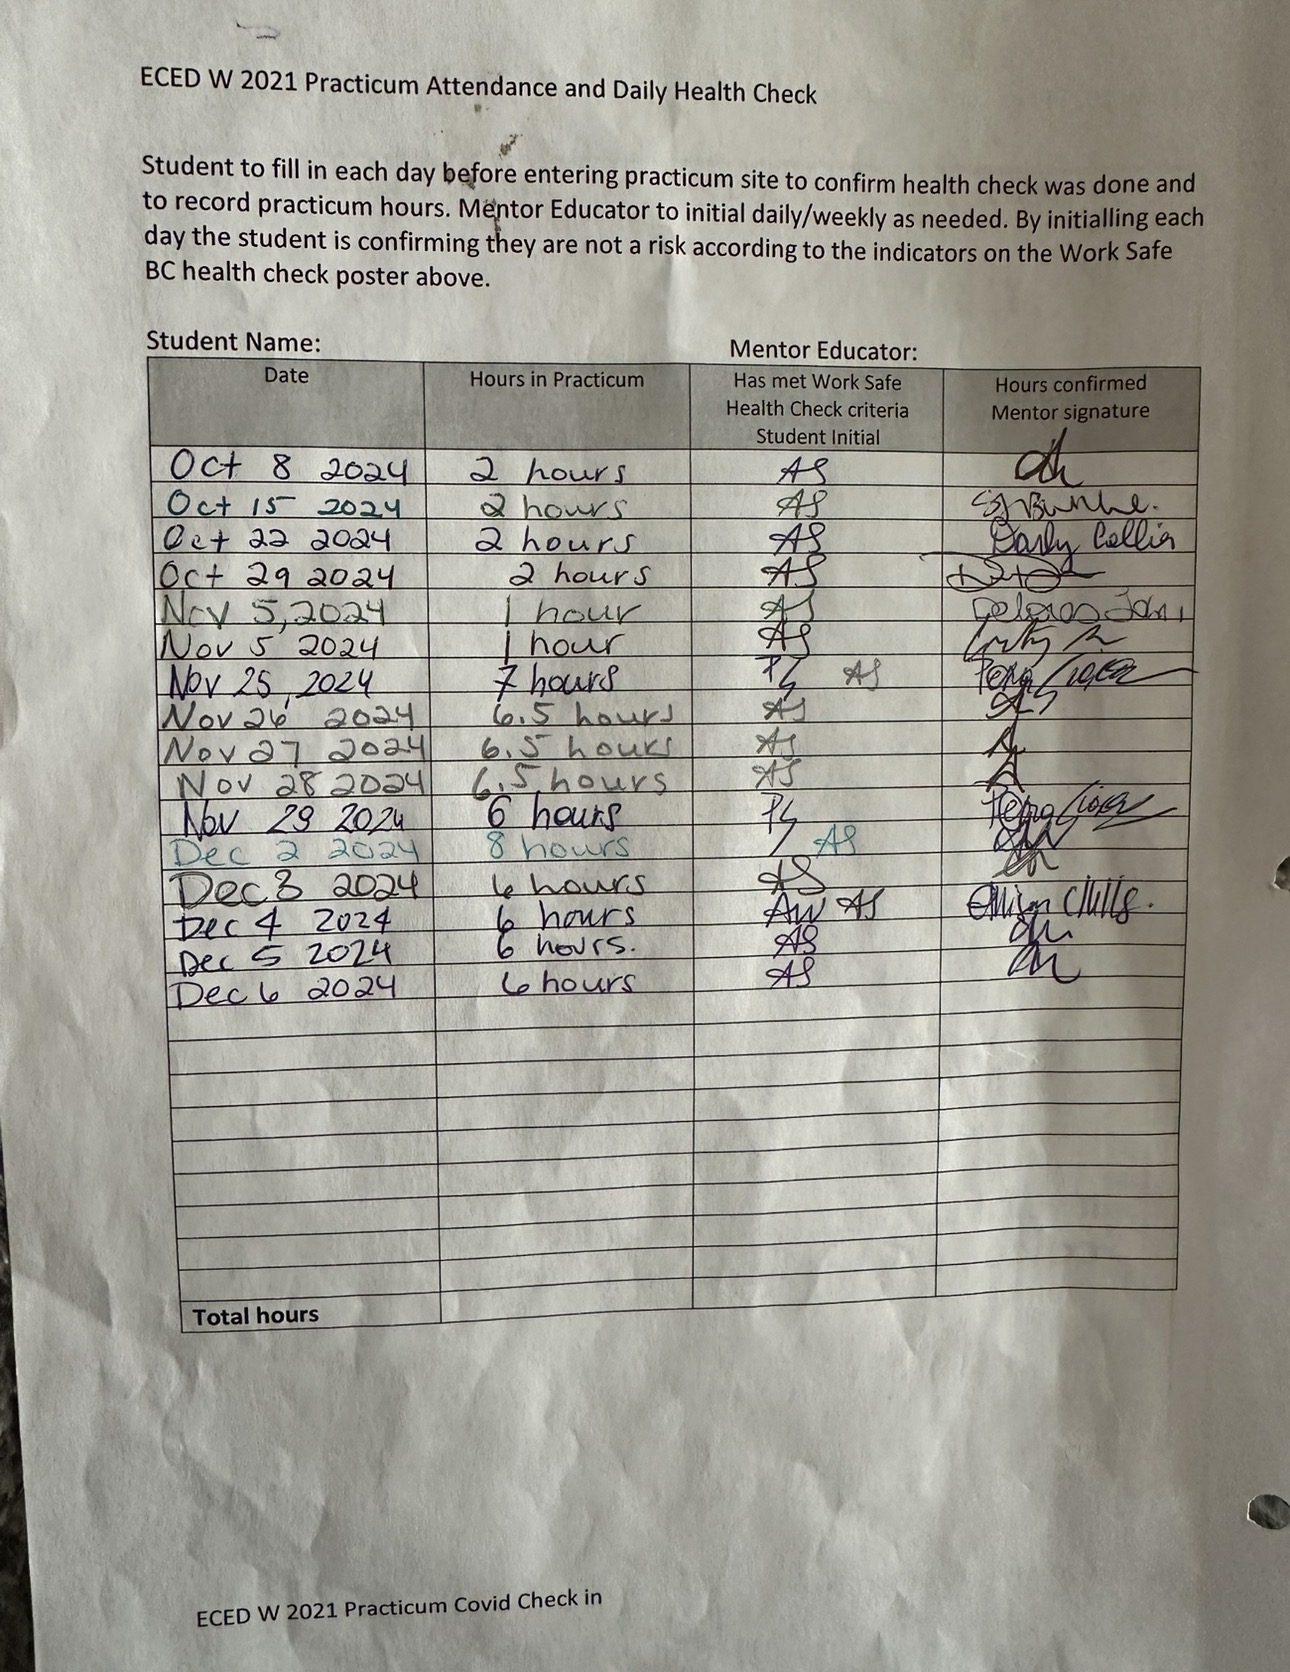 ECED W 2021 Practicum Attendance and Daily Health Check
Student to fill in each day before entering practicum site to confirm health check was done and
to record practicum hours. Mentor Educator to initial daily/weekly as needed. By initialling each
day the student is confirming they are not a risk according to the indicators on the Work Safe
BC health check poster above.
Student Name: Mentor Educator:
Date Hours in Practicum Has met Work Safe Health Check criteria Student Initial Hours confirmed Mentor signature
Oct 8 2024 2 hours AS
Oct 15 2024 2 hours AS
Oct 22 2024 2 hours AS
Oct 29 2024 2 hours AS
Nov 5, 2024 1 hour AS
Nov 5 2024 1 hour AS
Nov 25, 2024 7 hours AS
Nov 26 2024 6.5 hours AS
Nov 27 2024 6.5 hours AS
Nov 28 2024 6.5 hours AS
Nov 29 2024 6 hours
Dec 2 2024 8 hours AS
Dec 3 2024 6 hours AS
Dec 4 2024 6 hours AW AS
Dec 5 2024 6 hours. AS
Dec 6 2024 6 hours AS
Total hours
ECED W 2021 Practicum Covid Check in